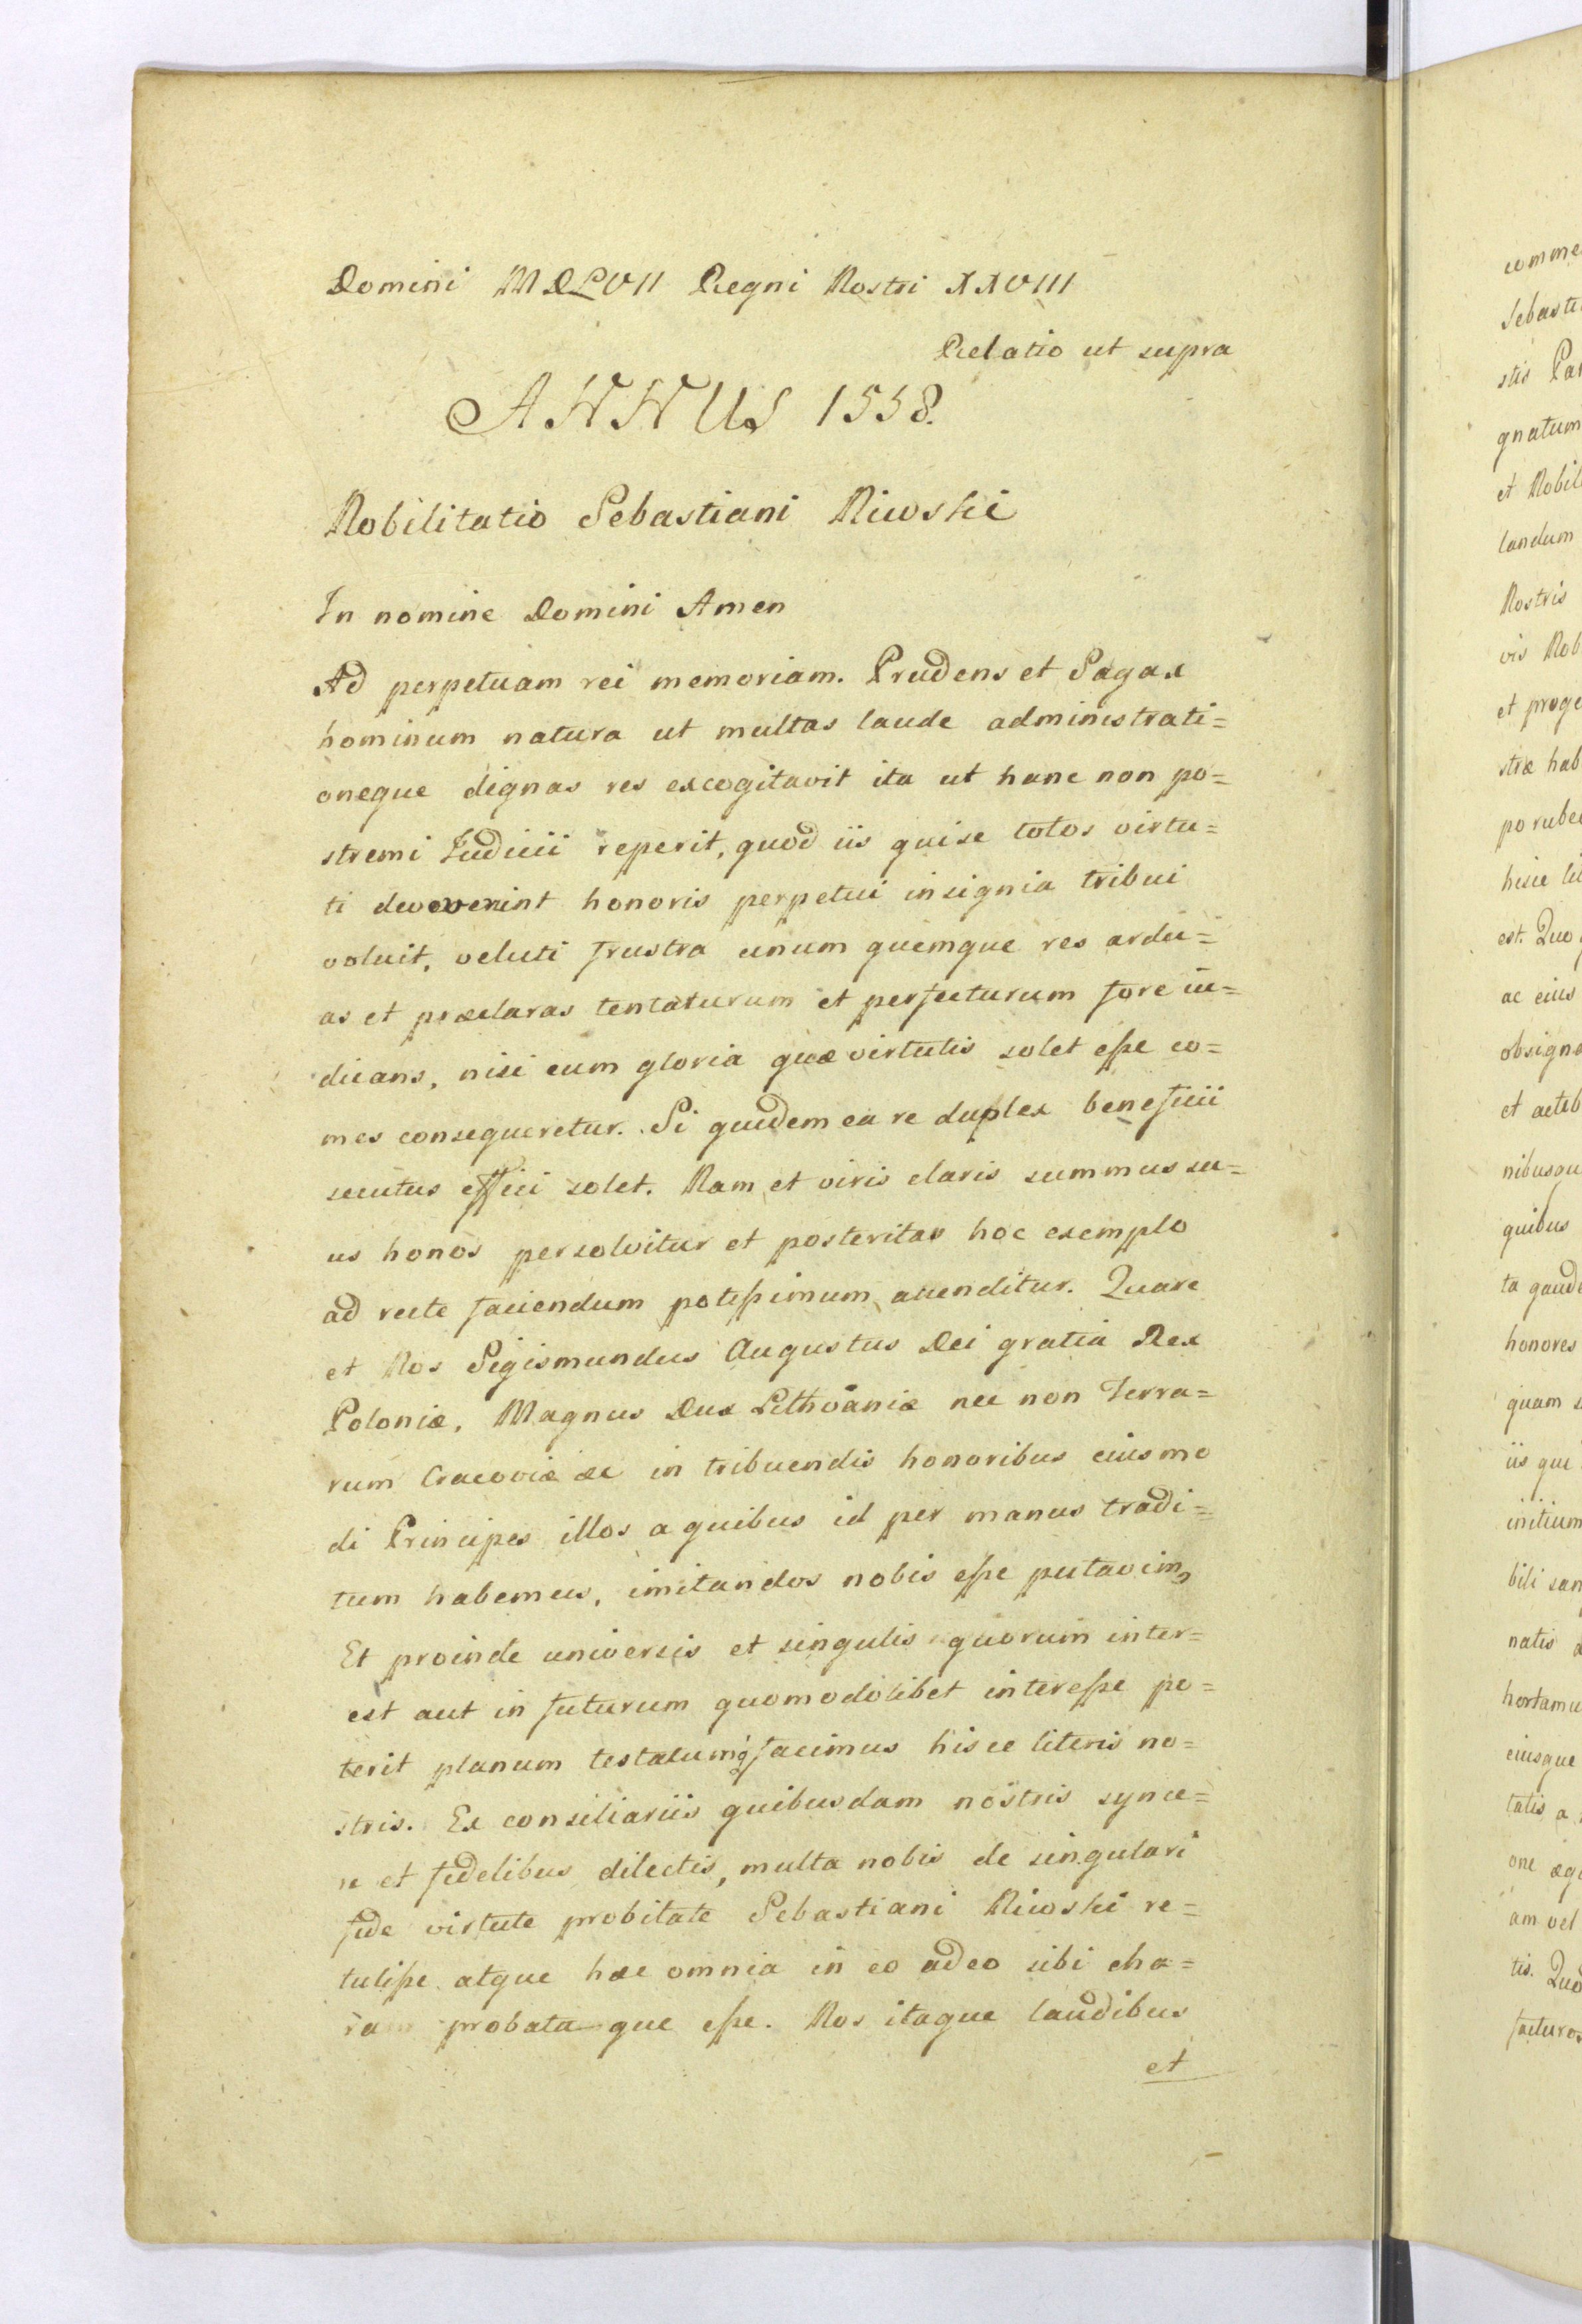 Domini MDLVII Regni Nostri XXVIII
Relatio ut supra
ANNUS 1558.
Nobilitatio Sebastiani Niwski
In nomine Domini Amen
Ad perpetuam rei memoriam. Prudens et Sagax
hominum natura ut multas laude administrati=
oneque dignas res excogitavit ita ut hanc non po=
stremi Iudicii reperit, quod iis qui se totos virtu=
ti devoverint honoris perpetui insignia tribui
voluit, veluti frustra unum quemque res ardu=
as et præclaras tentaturum et perfecturum fore iu=
dicans, nisi eum gloria quæ virtutis solet esse co=
mes consequeretur. Si quidem ea re duplex beneficii
secutus effici solet. Nam et viris claris summus su=
us honos persolvitur et posteritas hoc exemplo
ad recte faciendum potissimum accenditur. Quare
et Nos Sigismundus Augustus Dei gratia Rex
Poloniæ, Magnus Dux Lithvaniæ nec non Terra=
rum Cracoviæ æc in tribuendis honoribus eiusmo
di Principes illos a quibus id per manus tradi=
tum habemus, imitandos nobis esse putavim9
Et proinde universis et singulis quorum inter=
est aut in futurum quomodolibet interesse po=
terit planum testatumq facimus hisce literis no=
stris. Ex consiliariis quibusdam nostris synce=
re et fidelibus dilectis, multa nobis de singulari
fide virtute probitate Sebastiani Niwski re=
tulisse atque hæc omnia in eo adeo sibi cha=
ra probata que esse. Nos itaque laudibus
et
comme
Sebasti
stis Pa
gnatum
et Nobil
landum
Nostris
vis Nob
et proge
stræ hab
po rube
hisce li
est. Quo
ac eius
obsigna
et actib
nibusqu
quibus
ta gaude
honores
quam s
iis qui
initium
bili san
natis
hortamu
eiusque
tatis a
one æq
am vel
tis. Quo
facturos